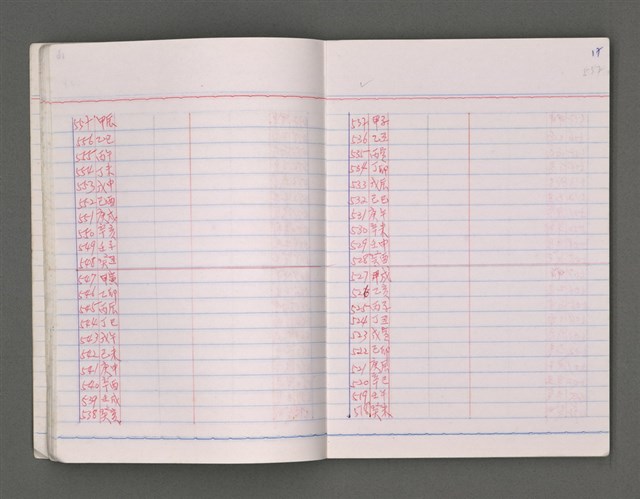 557 甲辰
556 乙巳
555 丙午
554 丁未
553 戊申
552 己酉
551 庚戌
550 辛亥
549 壬子
548 癸丑
547 甲寅
546 乙卯
545 丙辰
544 丁巳
543 戊午
542 己未
541 庚申
540 辛酉
539 壬戌
538 癸亥
537 甲子
536 乙丑
535 丙寅
534 丁卯
533 戊辰
532 己巳
531 庚午
530 辛未
529 壬申
528 癸酉
527 甲戌
526 乙亥
525 丙子
524 丁丑
523 戊寅
522 己卯
521 庚辰
520 辛巳
519 壬午
518 癸未